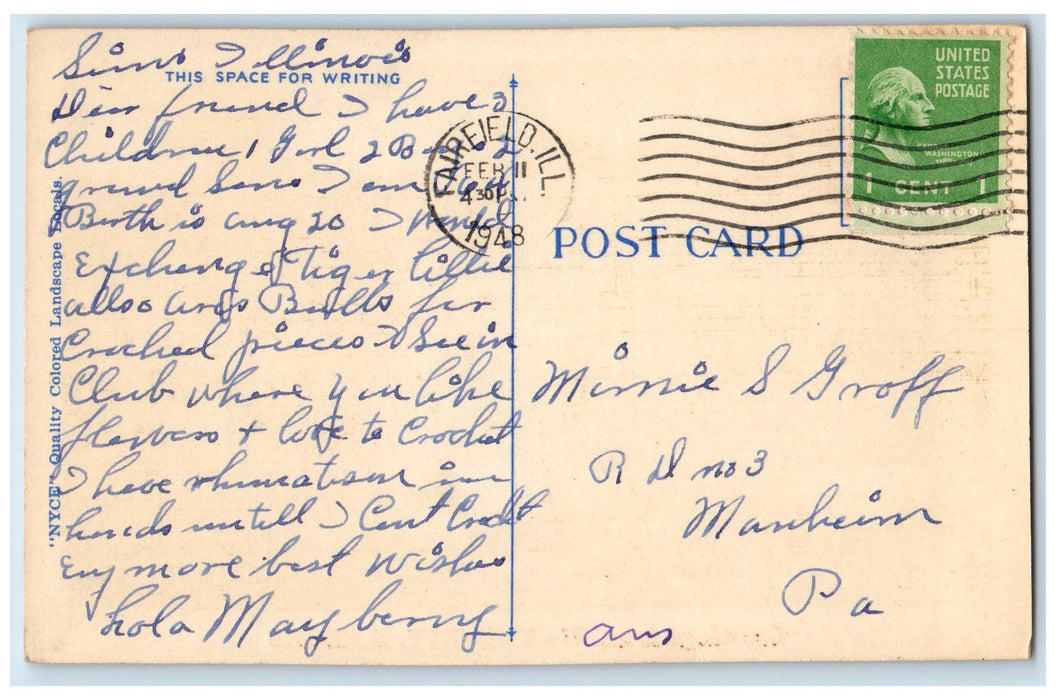 Sims Illinois
THIS SPACE FOR WRITING
Dear friend I have 3
Children 1 Girl 2 Boys 2
grand Sons I am 64
Birth is aug 20 I
Exchang of Tiger Lillie
allso Bulbs for
Croched pieces I See in
Club where you like
flowers + love to Crochet
I have rhumatism in
hands untill I Cant
Eny more best wishes
Lola Mayberry
"NYCE" Quality Colored Landscape Locals.
FAIRFIELD, ILL.
FEB 11
4 30 P
1948
UNITED
STATES
POSTAGE
GEORGE
WASHINGTON
1789
1 CENT 1
POST CARD
Minnie S Groff
R D no 3
Manheim
Pa
ans